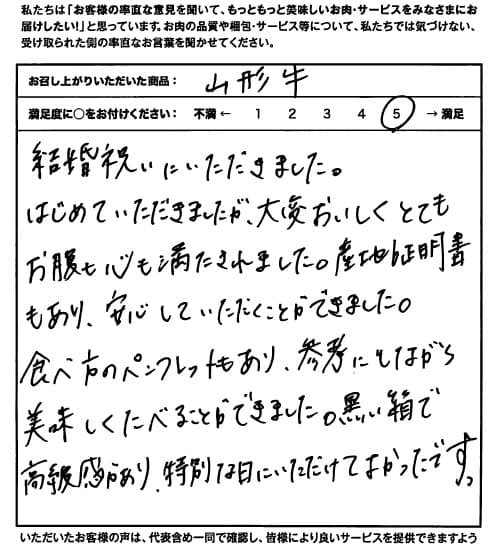 私たちは「お客様の率直な意見を聞いて、もっともっと美味しいお肉・サービスをみなさまにお
届けしたい!」と思っています。お肉の品質や梱包・サービス等について、私たちでは気づけない、
受け取られた側の率直なお言葉を聞かせてください。
お召し上がりいただいた商品： 山形牛
満足度に○をお付けください： 不満 ← 1 2 3 4 5 → 満足
結婚祝いにいただきました。
はじめていただきましたが、大変おいしくとても
お腹も心も満たされました。産地証明書
もあり、安心していただくことができました。
食べ方のパンフレットもあり、参考にしながら
美味しくたべることができました。黒い箱で
高級感があり、特別な日にいただけてよかったです。
いただいたお客様の声は、代表含め一同で確認し、皆様により良いサービスを提供できますよう